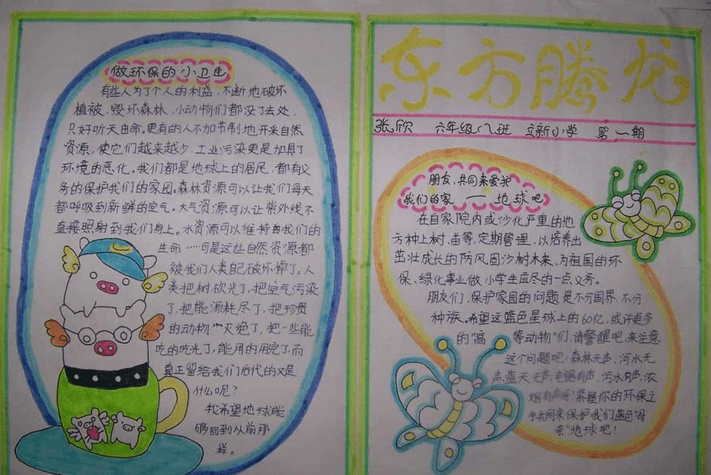 做环保的小卫生
有些人为了个人的利益,不断地破坏
植被,毁坏森林,小动物们都没了去处,
只好听天由命。更有的人不加节制地开来自然
资源,使它们越来越少,工业污染更是加具了
环境的恶化。我们都是地球上的居民,都有义
务的保护我们的家园。森林资源可以让我们每天
都呼吸到新鲜的空气。大气资源可以让紫外线不
直接照射到我们身上。水资源可以维持每我们的
生命……可是这些自然资源都
被我们人类自己破坏掉了。人
类把树砍光了,把空气污染
了,把能源耗尽了,把珍贵
的动物灭绝了,把一些能
吃的吃光了,能用的用完了,而
真正留给我们后代的又是
什么呢?
我希望地球能
够回到从前那
样。
东方腾龙
张欣 六年级八班 立新小学 第一期
朋友,共同来爱护
我们的家——地球吧
在自家院内或沙化严重的地
方种上树、苗等,定期管理,以培养出
茁壮成长的防风固沙树木来,为祖国的环
保、绿化事业做小学生应尽的一点义务。
朋友们,保护家园的问题是不分国界,不分
种族。希望这蓝色星球上的60亿,或许更多
的“高等动物”们,请警醒吧,来注意
这个问题吧:森林无声,河水无
声,蓝天无声,电锯有声,污水有声,浓
烟有声啊!紧握你的环保之
手共同来保护我们蓝色“母
亲”地球吧!